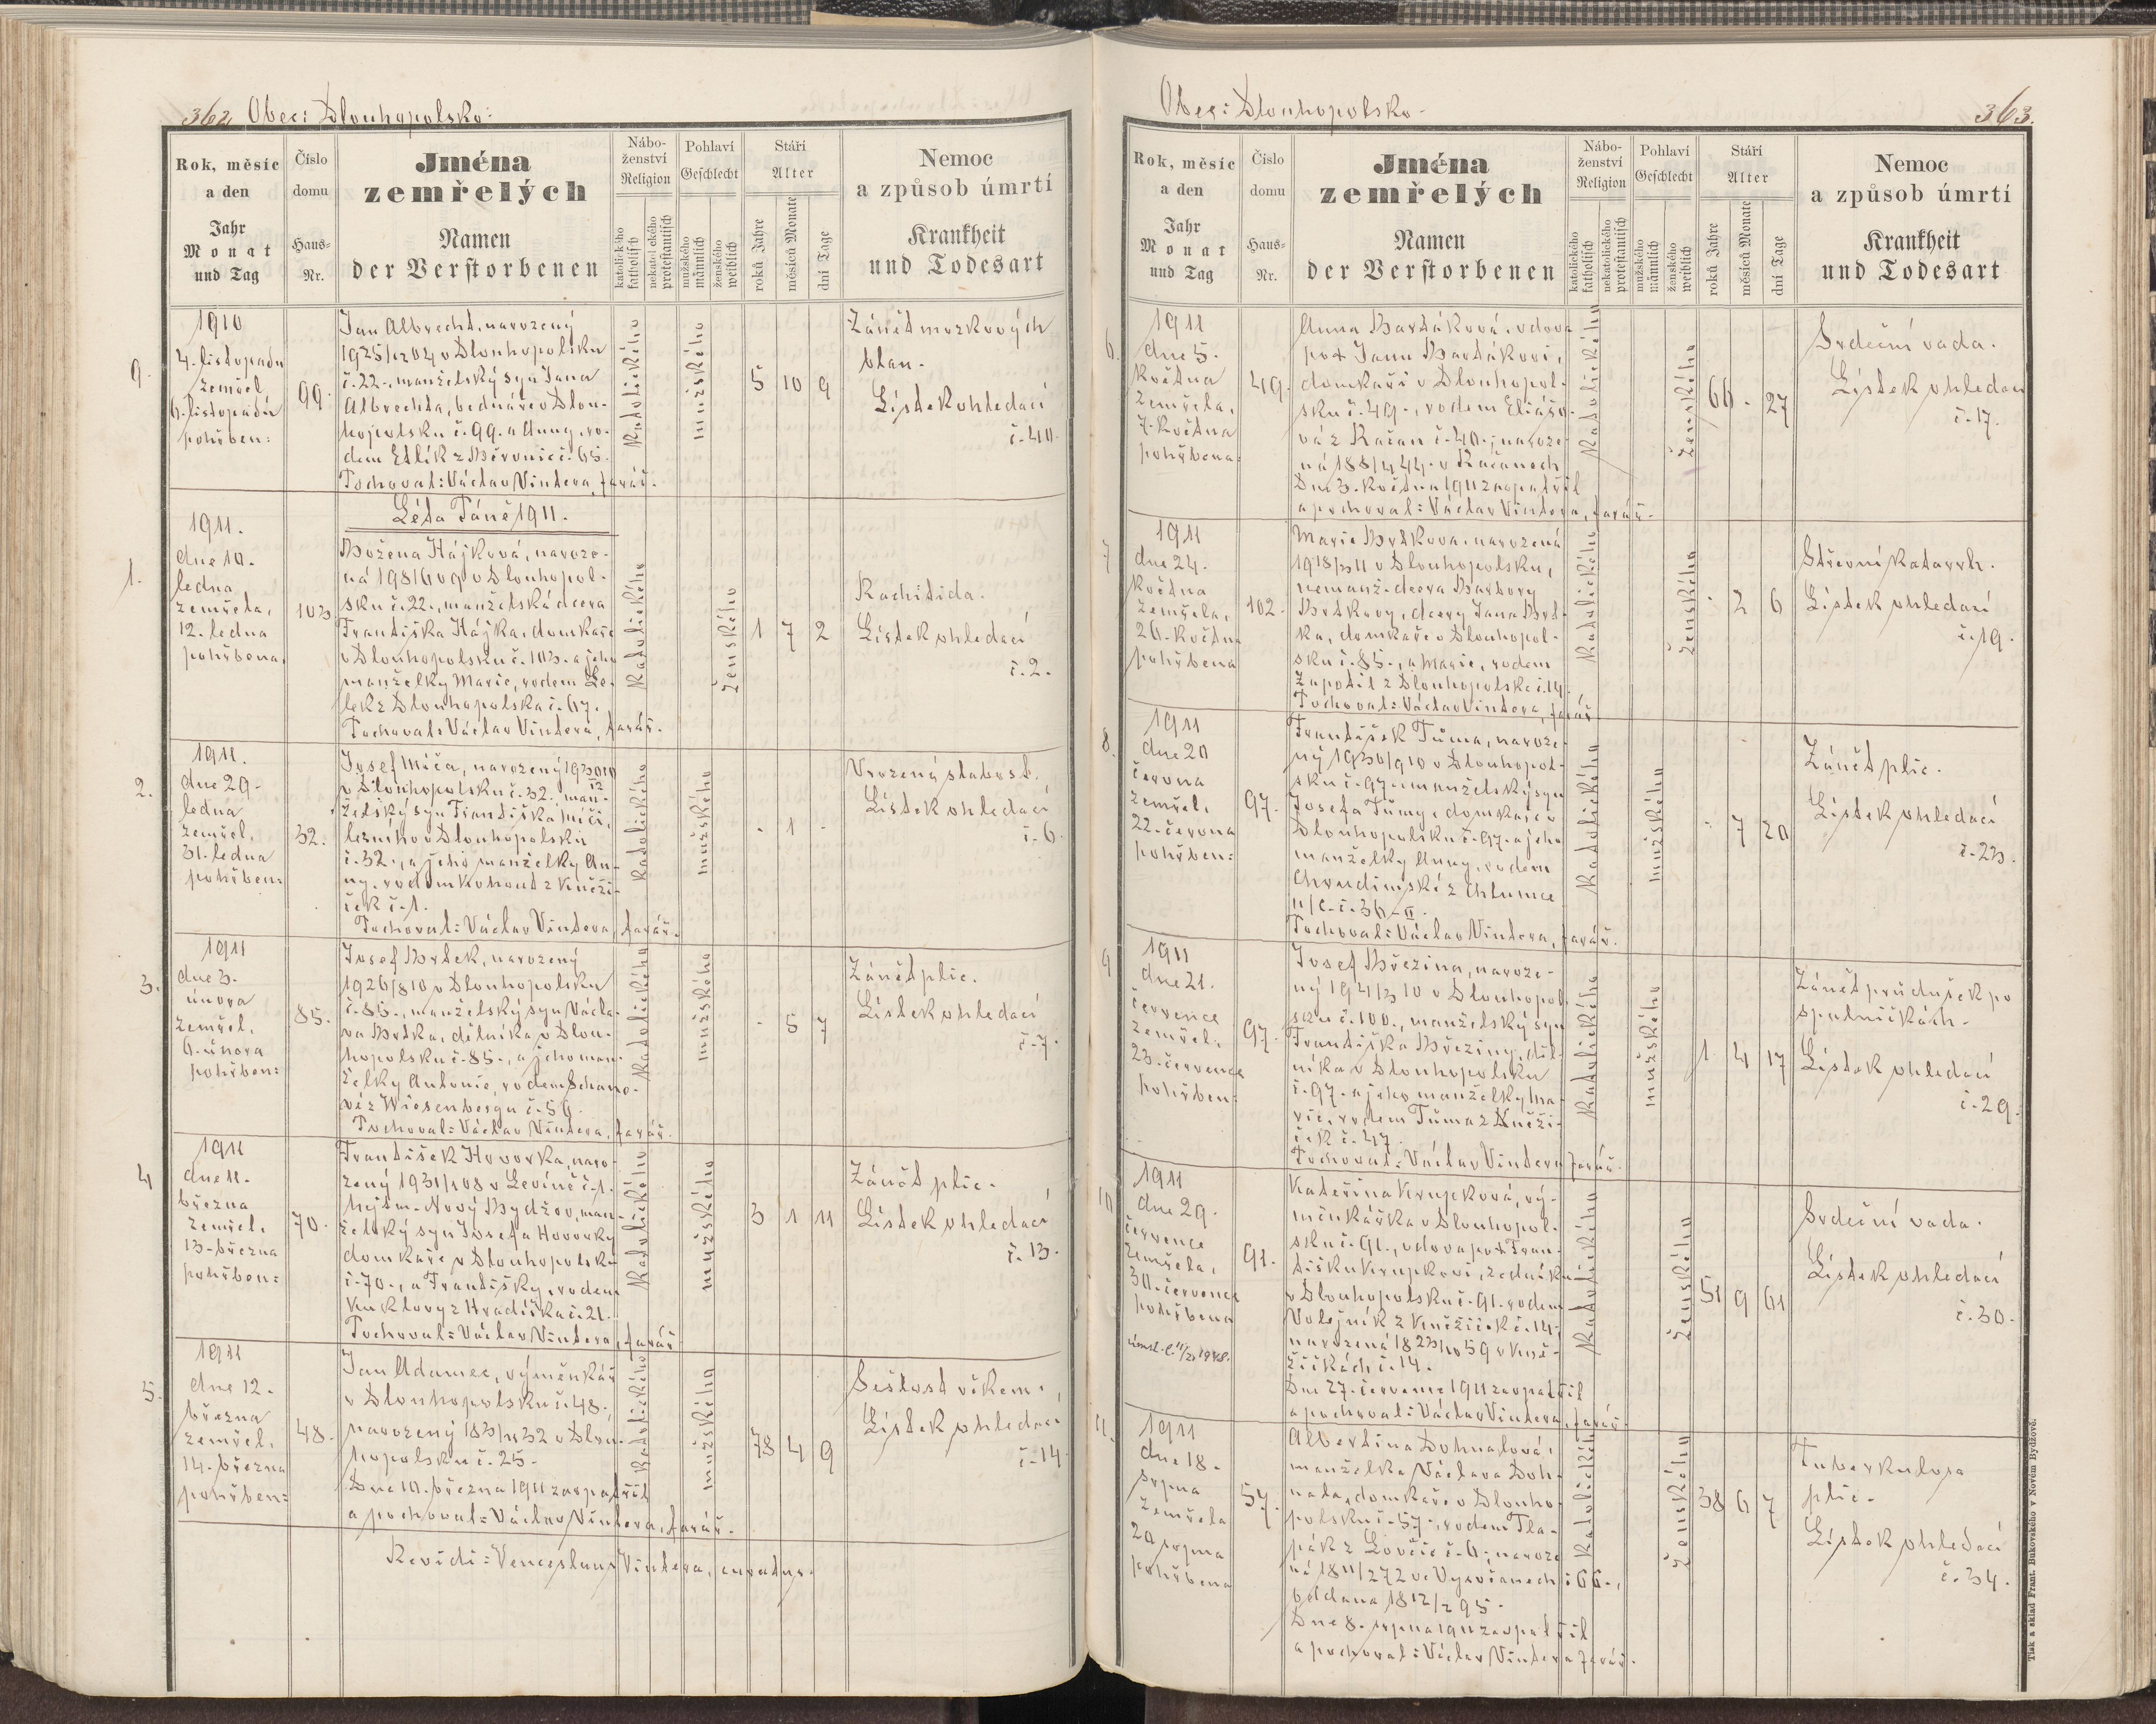 362 Obec: Dlouhopolsko.
Rok, měsíc a den
Jahr Monat und Tag
Číslo domu
Haus-Nr.
Jména zemřelých
Namen der Verstorbenen
Náboženství
Religion
katolického katholisch
nekatolického protestantisch
Pohlaví
Geschlecht
mužského männlich
ženského weiblich
Stáří
Alter
roků Jahre
měsíců Monate
dní Tage
Nemoc a způsob úmrtí
Krankheit und Todesart
9.
1910
4. listopadu
zemřel
6. listopadu
pohřben:
99.
Jan Albrecht, narozený
v Dlouhopolsku
č. 22., manželský syn Jana
Albrechta, bednáře v Dlou-
hopolsku č. 99. a Anny, ro-
dem Etlík z Běrunic č. 65.
Pochoval: Václav Vintera, farář.
Katolického
mužského
5 10 9
Zánět mozkových
blan.
Lístek ohledací
č. 40.
Léta Páně 1911.
1.
1911.
dne 10.
ledna
zemřela,
12. ledna
pohřbena.
103
Božena Hájková, naroze-
ná 1981/609 v Dlouhopol-
sku č. 22., manželská dcera
Františka Hájka, domkaře
v Dlouhopolsku č. 103. a jeho
manželky Marie, rodem Le-
z Dlouhopolska č. 67.
Pochoval: Václav Vintera, farář.
Katolického
ženského
1 7 2
Rachitida.
Lístek ohledací
č. 2.
2.
1911.
dne 29.
ledna
zemřel,
31. ledna
pohřben:
32.
Josef Míča, narozený
v Dlouhopolsku č. 32., man-
želský syn Františka Míči,
v Dlouhopolsku
č. 32., a jeho manželky An-
ny, rodem Kohout z Kněži-
ček č. 1.
Pochoval: Václav Vintera, farář.
Katolického
mužského
- 1 -
Vrozený slabost.
Lístek ohledací
č. 6.
3.
1911
dne 3.
února
zemřel,
6. února
pohřben:
85.
Josef Brtek, narozený
1926/810 v Dlouhopolsku
č. 85., manželský syn Václa-
va Brtka, dělníka v Dlou-
hopolsku č. 85., a jeho man-
želky Antonie, rodem
z Wiesenbergu č. 59.
Pochoval: Václav Vintera, farář.
Katolického
mužského
- 5 7
Zánět plic.
Lístek ohledací
č. 7.
4
1911
dne 11.
března
zemřel,
13. března
pohřben:
70.
František Hovorka, naro-
zený v Levíně č. 1.
hejtm. Nový Bydžov, man-
želský syn Josefa Hovorky
domkaře v Dlouhopolsku
č. 70., a Františky, rodem
Kuklovy z Hradišťka č. 21.
Pochoval: Václav Vintera, farář.
Katolického
mužského
3 1 11
Zánět plic.
Lístek ohledací
č. 13.
5.
1911
dne 12.
března
zemřel,
14. března
pohřben:
48.
Jan Adamec, výměnkář
v Dlouhopolsku č. 48.
narozený v Dlou-
hopolsku č. 25.
Dne 10. března 1911 zaopatřil
a pochoval: Václav Vintera, farář.
Katolického
mužského
78 4 9
Sešlost věkem.
Lístek ohledací
č. 14.
Revidi: Venceslaus Vintera, curatus.
Obec: Dlouhopolsko. 363.
Rok, měsíc a den
Jahr Monat und Tag
Číslo domu
Haus-Nr.
Jména zemřelých
Namen der Verstorbenen
Náboženství
Religion
katolického katholisch
nekatolického protestantisch
Pohlaví
Geschlecht
mužského männlich
ženského weiblich
Stáří
Alter
roků Jahre
měsíců Monate
dní Tage
Nemoc a způsob úmrtí
Krankheit und Todesart
6.
1911
dne 5.
května
zemřela,
7. května
pohřbena:
49.
Anna Bartáková, vdova
po † Janu Bartákovi,
domkaři v Dlouhopol-
sku č. 49., rodem Eliášo-
vá z Račan č. 40.; naroze-
ná 188/444. v Račanech
Dne 3. května 1911 zaopatřil
a pochoval: Václav Vintera, farář.
Katolického
ženského
66 - 27
Srdeční vada.
Lístek ohledací
č. 17.
7
1911
dne 24.
května
zemřela,
26. května
pohřbena
102.
Marie Brtkova, narozená
1918/311 v Dlouhopolsku,
nemanž. dcera Barbory
Brtkovy, dcery Jana Brt-
ka, domkaře v Dlouhopol-
sku č. 85., a Marie, rodem
Zapotil z Dlouhopolska č. 14.
Pochoval: Václav Vintera, farář
Katolického
ženského
- 2 6
Střevní katarrh.
Lístek ohledací
č. 19.
8.
1911
dne 20
června
zemřel,
22. června
pohřben:
97.
František Tůma, naroze-
ný v Dlouhopol-
sku č. 97., manželský syn
Josefa Tůmy, domkaře v
Dlouhopolsku č. 97. a jeho
manželky Anny, rodem
Chrudimské z Chlumce
n/C. č. 36-II.
Pochoval: Václav Vintera, farář.
Katolického
mužského
- 7 20
Zánět plic.
Lístek ohledací
č. 23.
9
1911
dne 21.
července
zemřel,
23. července
pohřben:
97.
Josef Březina, naroze-
ný 194/310 v Dlouhopol-
sku č. 100., manželský syn
Františka Březiny, děl-
níka v Dlouhopolsku
č. 97. a jeho manželky Ma-
rie, rodem Tůma z Kněži-
ček č. 47.
Pochoval: Václav Vintera farář.
Katolického
mužského
1 4 17
Zánět průdušek po
spalničkách.
Lístek ohledací
č. 29.
10
1911
dne 29.
července
zemřela,
30. července
pohřbena
91.
Kateřina Krupková, vý-
měnkářka v Dlouhopol-
sku č. 91., vdova po † Fran-
tišku Krupkovi, zedníku
v Dlouhopolsku č. 91. rodem
Volejník z Kněžiček č. 14,
narozená v Kně-
žičkách č. 14.
Dne 27. července 1911 zaopatřil
a pochoval: Václav Vintera, farář.
Katolického
ženského
51 9 61
Srdeční vada.
Lístek ohledací
č. 30.
11.
1911
dne 18.
srpna
zemřela
20 srpna
pohřbena
57.
Albertina Dohnalová,
manželka Václava Doh-
nala, domkaře v Dlouho-
polsku č. 57., rodem Tla-
pák z Lovčic č. 6.; naroze-
ná 1811/272 ve Vysočanech č 66.,
oddana 1812/2 95.
Dne 8. srpna 1911 zaopatřil
a pochoval: Václav Vintera farář.
Katolického
ženského
38 6 7
Tuberkulosa
plic.
Lístek ohledací
č. 34.
Tisk a sklad Frant. Bukovského v Novém Bydžově.